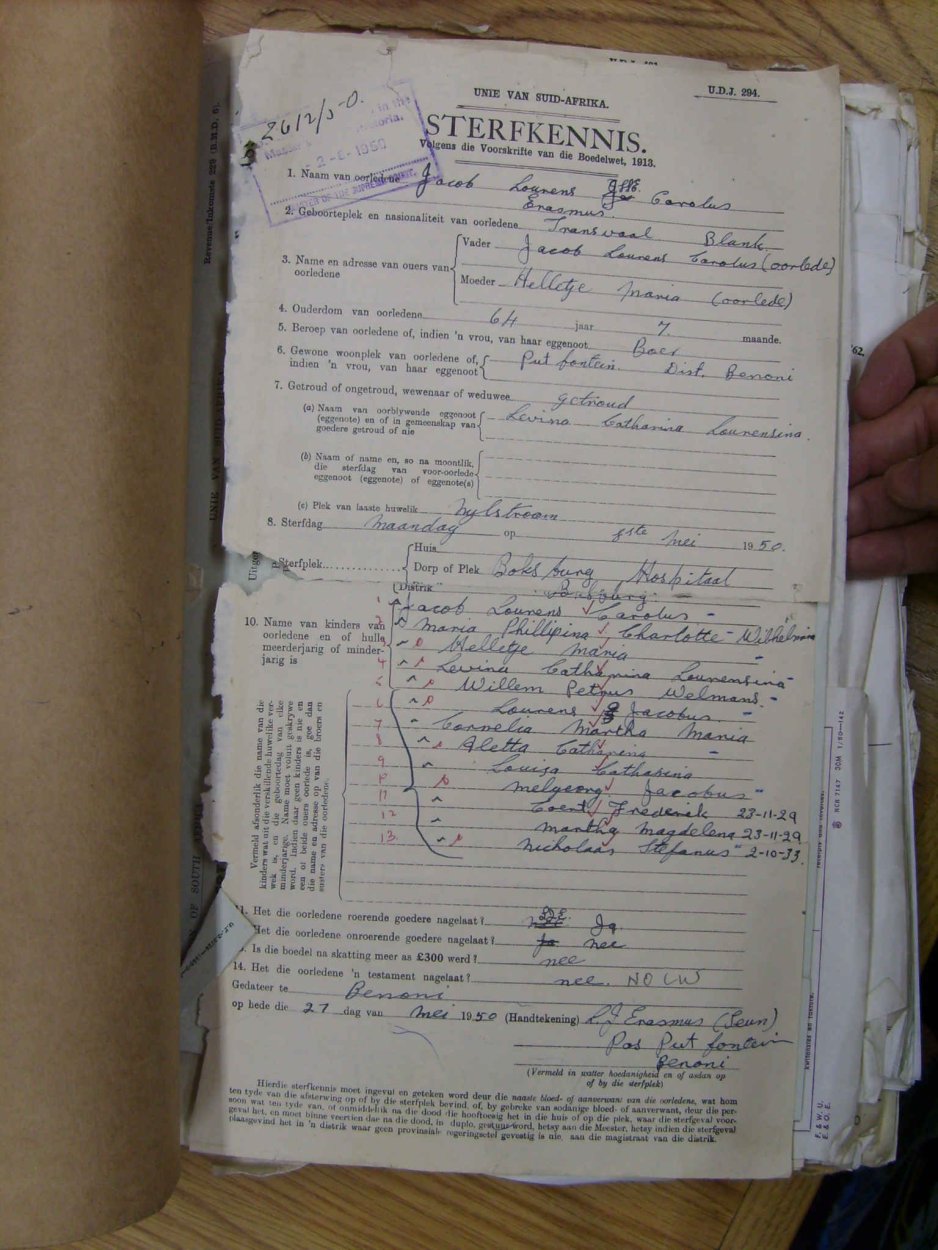 U.D.J. 294.
UNIE VAN SUID-AFRIKA.
2612/50.
STERFKENNIS.
Volgens die Voorskrifte van die Boedelwet, 1913.
1. Naam van oorledene Jacob Lourens Carolus
Erasmus.
2. Geboorteplek en nasionaliteit van oorledene Transvaal Blank.
3. Name en adresse van ouers van oorledene
Vader Jacob Lourens Carolus (oorlede)
Moeder Helletje Maria (oorlede)
4. Ouderdom van oorledene 64 jaar 7 maande.
5. Beroep van oorledene of, indien 'n vrou, van haar eggenoot Boer
6. Gewone woonplek van oorledene of, indien 'n vrou, van haar eggenoot Putfontein. Dist. Benoni
7. Getroud of ongetroud, wewenaar of weduwee getroud
(a) Naam van oorblywende eggenoot (eggenote) en of in gemeenskap van goedere getroud of nie Levina Catharina Lourensina.
(b) Naam of name en, so na moontlik, die sterfdag van voor-oorlede eggenoot (eggenote) of eggenote(s)
(c) Plek van laaste huwelik Nylstroom
8. Sterfdag Maandag op 8ste Mei 1950.
Sterfplek
Huis
Dorp of Plek Boksburg Hospitaal
Distrik Boksburg.
10. Name van kinders van oorledene en of hulle meerderjarig of minderjarig is
1 Jacob Lourens Carolus "
2 Maria Phillipina Charlotte Wilhelmina
3 Helletje Maria "
4 Levina Catharina Lourensina "
5 Willem Petrus Welmans "
6 Lourens Jacobus "
7 Cornelia Martha Maria
8 Aletta Catharina "
9 Louisa Catharina
10 Jacobus "
11 Coert Frederik 23-11-29
12 Martha Magdelena 23-11-29
13 Nicholaas Stefanus 2-10-33.
Vermeld afsonderlik die name van die
kinders wat uit die verskillende huwelike verwek
is, en die geboortedag van elke
minderjarige. Name moet voluit geskrywe
word. Indien daar geen kinders is nie en
een of beide ouers oorlede is, gee dan
die name en adresse op van die broers en
susters van die oorledene.
11. Het die oorledene roerende goedere nagelaat? Ja
Het die oorledene onroerende goedere nagelaat? nee
Is die boedel na skatting meer as £300 werd? nee
14. Het die oorledene 'n testament nagelaat? nee. NO LW
Gedateer te Benoni
op hede die 27 dag van Mei 1950 (Handtekening) L.J Erasmus (Seun)
Pos Putfontein
Benoni
(Vermeld in watter hoedanigheid en of asdan op
of by die sterfplek)
Hierdie sterfkennis moet ingevul en geteken word deur die naaste bloed- of aanverwant van die oorledene, wat hom
ten tyde van die afsterwing op of by die sterfplek bevind of, by gebreke van sodanige bloed- of aanverwant, deur die persoon
wat ten tyde van, of onmiddellik na die dood die hooftoesig het in die huis of op die plek, waar die sterfgeval voorgeval
het, en moet binne veertien dae na die dood, in duplo, gestuur word, hetsy aan die Meester, hetsy indien die sterfgeval
plaasgevind het in 'n distrik waar geen provinsiale regeringsetel gevestig is nie, aan die magistraat van die distrik.
Revenue/Inkomste 229 (B.H.D. 6).